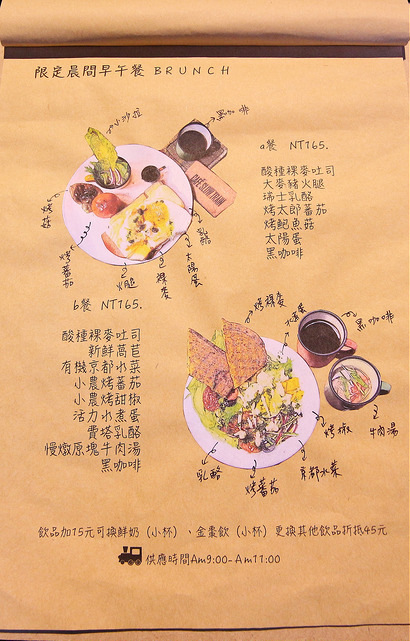 限定晨間早午餐 BRUNCH
小沙拉
黑咖啡
a餐 NT165.
酸種裸麥吐司
大麥豬火腿
瑞士乳酪
烤太郎蕃茄
烤鮑魚菇
太陽蛋
黑咖啡
烤菇
烤蕃茄
火腿
裸麥
太陽蛋
乳酪
CAFE SLOW TRAIN
b餐 NT165.
酸種裸麥吐司
新鮮萵苣
有機京都水菜
小農烤蕃茄
小農烤甜椒
活力水煮蛋
費塔乳酪
慢燉原塊牛肉湯
黑咖啡
烤裸麥
水煮蛋
黑咖啡
乳酪
烤蕃茄
京都水菜
烤椒
牛肉湯
飲品加15元可換鮮奶（小杯）、金棗飲（小杯）更換其他飲品折抵45元
供應時間Am9:00-Am11:00